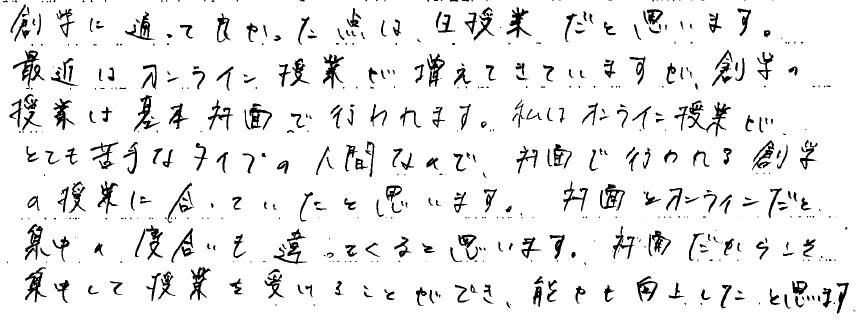 創学に通って良かった点は、生授業だと思います。
最近はオンライン授業が増えてきていますが、創学の
授業は基本対面で行われます。私はオンライン授業が
とても苦手なタイプの人間なので、対面で行われる創学
の授業に合っていたと思います。対面とオンラインだと
集中の度合いも違ってくると思います。対面だからこそ
集中して授業を受けることができ、能力も向上したと思います